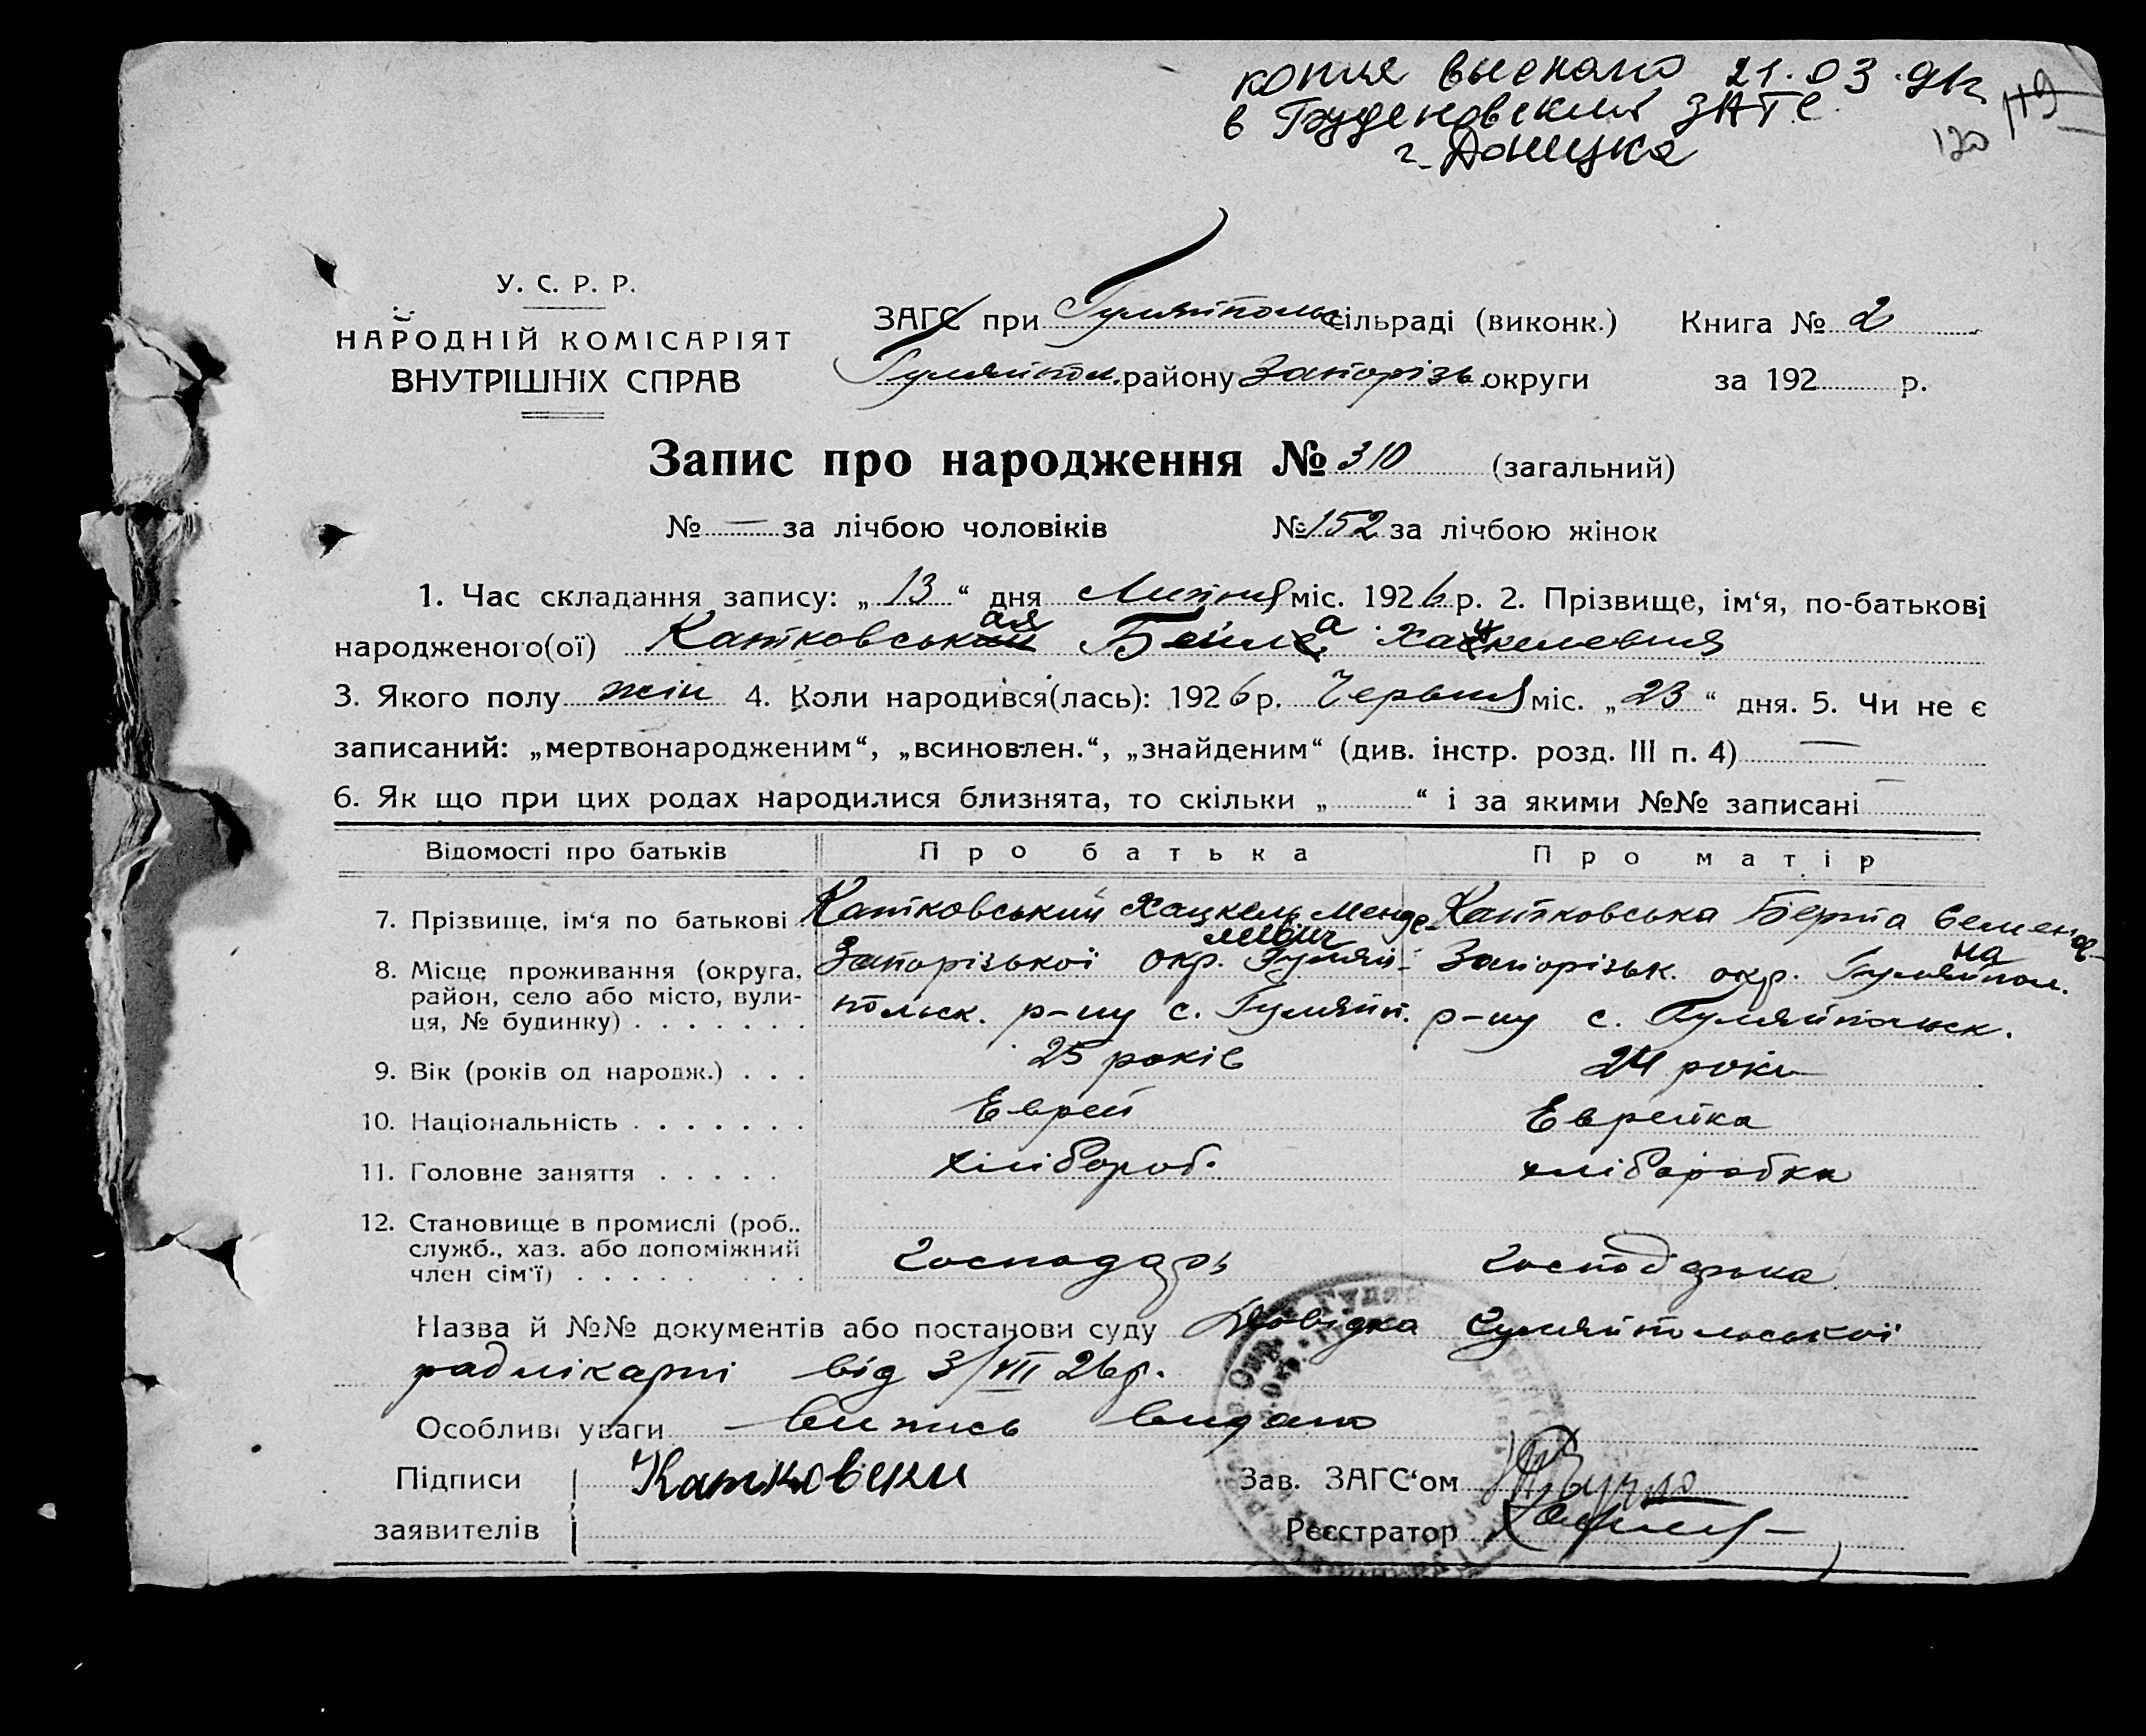 копия выслана 21.03.91г.
в Буденовский ЗАГС
г. Донецка
119
120
У. С. Р. Р.
НАРОДНІЙ КОМІСАРІЯТ
ВНУТРІШНІХ СПРАВ
ЗАГС при Гуляйпольс сільраді (виконк.) Книга № 2
Гуляйпол. району Запорізь округи за 192 р.
Запис про народження № 310 (загальний)
№ — за лічбою чоловіків № 152 за лічбою жінок
1. Час складання запису: „ 13 “ дня Липня міс. 1926 р. 2. Прізвище, ім‘я, по-батькові
народженого(ої) Катковськая Бейла Хацкелевна
3. Якого полу жін 4. Коли народився(лась): 1926 р. Червня міс. „ 23 “ дня. 5. Чи не є
записаний: „мертвонародженим“, „всиновлен.“, „знайденим“ (див. інстр. розд. III п. 4) —
6. Як що при цих родах народилися близнята, то скільки „ “ і за якими №№ записані —
Відомості про батьків Про батька Про матір
7. Прізвище, ім‘я по батькові Катковський Хацкель Менделевіч Катковська Берта Семеновна
8. Місце проживання (округа, район, село або місто, вулиця, № будинку) Запорізької окр. Гуляйпольск. р-ну с. Гуляйп. Запорізьк. окр. Гуляйпол. р-ну с. Гуляйпольск.
9. Вік (років од народж.) 25 років 24 роки
10. Національність Еврей Еврейка
11. Головне заняття хлібороб. хліборобка
12. Становище в промислі (роб.. служб., хаз. або допоміжний член сім‘ї) господарь господарька
Назва й №№ документів або постанови суду Довідка Гуляйпольської
радлікарні від 3/VII 26р.
Особливі уваги — Випись видано
Підписи Катковски Зав. ЗАГС‘ом
заявителів Реєстратор